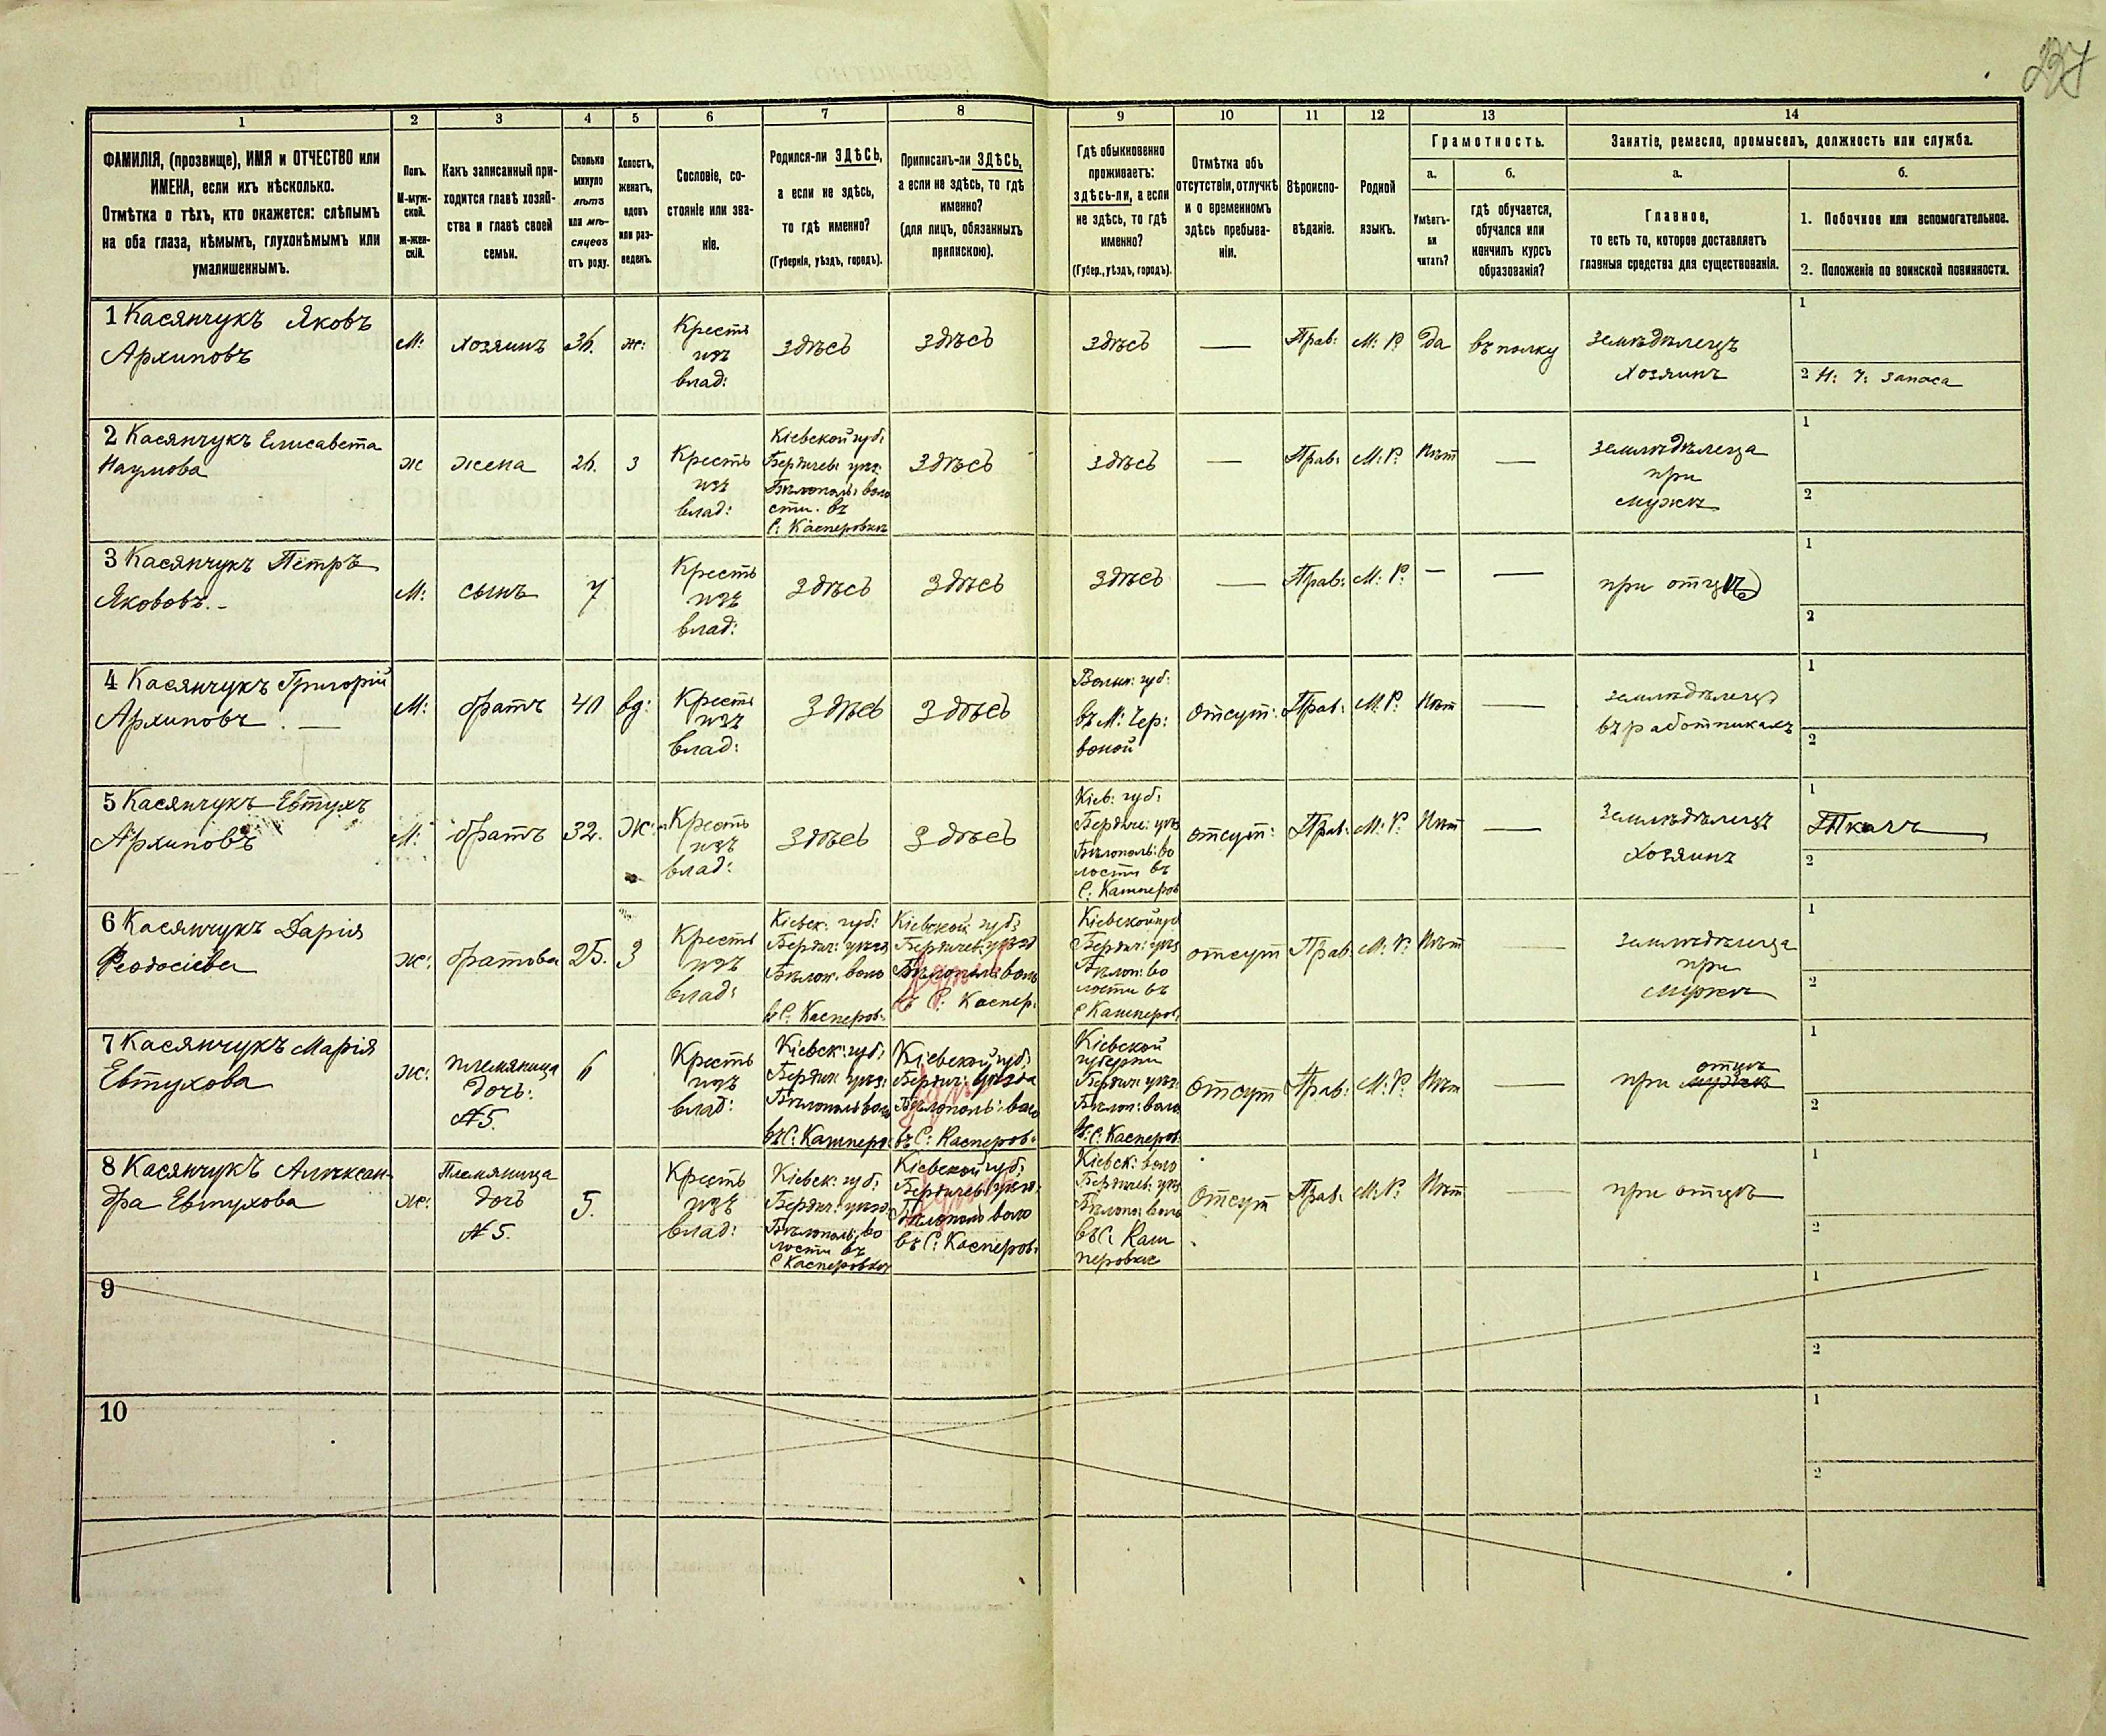 237
1
2
3
4
5
6
7
8
9
10
11
12
13
14
ФАМИЛІЯ, (прозвище), ИМЯ и ОТЧЕСТВО или
ИМЕНА, если ихъ нѣсколько.
Отмѣтка о тѣхъ, кто окажется: слѣпымъ
на оба глаза, нѣмымъ, глухонѣмымъ или
умалишеннымъ.
Полъ.
М-муж-
ской.
ж-жен-
скій.
Какъ записанный при-
ходится главѣ хозяй-
ства и главѣ своей
семьи.
Сколько
минуло
лѣтъ
или мѣ-
сяцевъ
отъ роду.
Холостъ,
женатъ,
вдовъ
или раз-
веденъ.
Сословіе, со-
стояніе или зва-
ніе.
Родился-ли ЗДѢСЬ,
а если не здѣсь,
то гдѣ именно?
(Губернія, уѣздъ, городъ).
Приписанъ-ли ЗДѢСЬ,
а если не здѣсь, то гдѣ
именно?
(для лицъ, обязанныхъ
припискою).
Гдѣ обыкновенно
проживаетъ:
здѣсь-ли, а если
не здѣсь, то гдѣ
именно?
(Губер., уѣздъ, городъ).
Отмѣтка объ
отсутствіи, отлучкѣ
и о временномъ
здѣсь пребыва-
ніи.
Вѣроиспо-
вѣданіе.
Родной
языкъ.
Грамотность.
а.
Умѣетъ-
ли
читать?
б.
гдѣ обучается,
обучался или
кончилъ курсъ
образованія?
Занятіе, ремесло, промыселъ, должность или служба.
а.
Главное,
то есть то, которое доставляетъ
главныя средства для существованія.
б.
1. Побочное или вспомогательное.
2. Положеніе по воинской повинности.
1 Касянчукъ Яковъ
Архиповъ
М:
хозяинъ
36.
ж:
Кресть
изъ
влад:
здѣсь
здѣсь
здѣсь
—
Прав:
М: Р:
Да
въ полку
земледѣлецъ
Хозяинъ
1
2 Н: Ч: запаса
2 Касянчукъ Елисавета
Наумова
ж
жена
26.
з
Кресть
изъ
влад:
Кіевской губ:
Бердичев: уѣз:
Бѣлополь: воло
сти. въ
С: Касперовкѣ
здѣсь
здѣсь
—
Прав:
М: Р:
Нѣт
—
земледѣлеца
при
мужѣ
1
2
3 Касянчукъ Петръ
Яковъ.-
М:
сынъ
7
Кресть
изъ
влад:
здѣсь
здѣсь
здѣсь
—
Прав:
М: Р:
—
—
при отцѣ
1
2
4 Касянчукъ Григорій
Архиповъ. —
М:
братъ
40
вд:
Кресть
изъ
влад:
здѣсь
здѣсь
Волын: губ:
въ М: Чер:
воной
отсут:
Прав:
М: Р:
Нѣт
—
земледѣлецъ
въ работникахъ
1
2
5 Касянчукъ Евтухъ
Архиповъ
М:
братъ
32.
Ж:
Кресть
изъ
влад:
здѣсь
здѣсь
Кіев: губ:
Бердич: уѣз
Бѣлополь: во
лости въ
С: Кашперов
отсут:
Прав:
М: Р:
Нѣт
—
Земледѣлецъ
Хозяинъ
1
Ткачъ
2
6 Касянчукъ Дарія
Феодосіева
ж:
братова
25.
З
Кресть
изъ
влад:
Кіевск: губ:
Бердич: уѣзд
Бѣлоп: воло
въ С: Касперов:
Кіевской губ:
Бердичев: уѣзд
Бѣлополь: воло
въ С: Каспер:
Кіевской губ
Бердич: уѣз
Бѣлоп: во
лости въ
С Кашперов:
отсут
Прав:
М: Р:
Нѣт
—
земледѣлеца
при
мужѣ
1
2
7 Касянчукъ Марія
Евтухова
ж:
племяница
дочь:
№ 5.
6
Кресть
изъ
влад:
Кіевск: губ:
Бердич: уѣз:
Бѣлополь воло
въ С: Кашперо:
Кіевской губ:
Бердич: уѣзда
Бѣлополь: воло
въ С: Касперов:
Кіевской
губерніи
Бердич: уѣз:
Бѣлоп: воло
въ: С. Касперов:
Отсут
Прав:
М: Р:
Нѣт
—
отцѣ
при мужѣ
1
2
8 Касянчукъ Алексан
дра Евтухова
ж:
Племяница
дочь
№ 5.
5.
Кресть
изъ
влад:
Кіевск: губ:
Бердич: уѣзд
Бѣлополь: во
лости въ
С Касперовкѣ
Кіевской губ:
Бердичев: уѣзд
Бѣлополь воло
въ С: Касперов:
Кіевск: воло
Бердичев: уѣз
Бѣлопо: воло
въ С: Каш
перовкѣ
Отсут
Прав:
М: Р:
Нѣт
—
при отцѣ
1
2
9
1
2
10
1
2